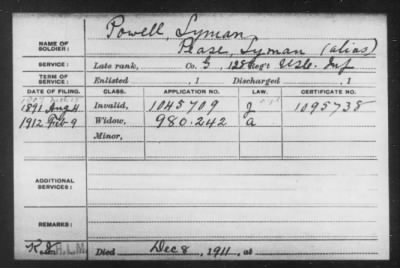 Powell, Lyman
NAME OF SOLDIER: Pease, Lyman (alias)
SERVICE: Late rank, Co. G, 128 Reg't U.S.C. Inf
TERM OF SERVICE: Enlisted , 1 Discharged , 1
DATE OF FILING. CLASS. APPLICATION NO. LAW. CERTIFICATE NO.
1891 Aug 4 Invalid, 1045709 J 1095738
1912 Feb 9 Widow, 980.242 A
Minor,
ADDITIONAL SERVICES:
REMARKS:
H.L.M. Died Dec 8, 1911, at